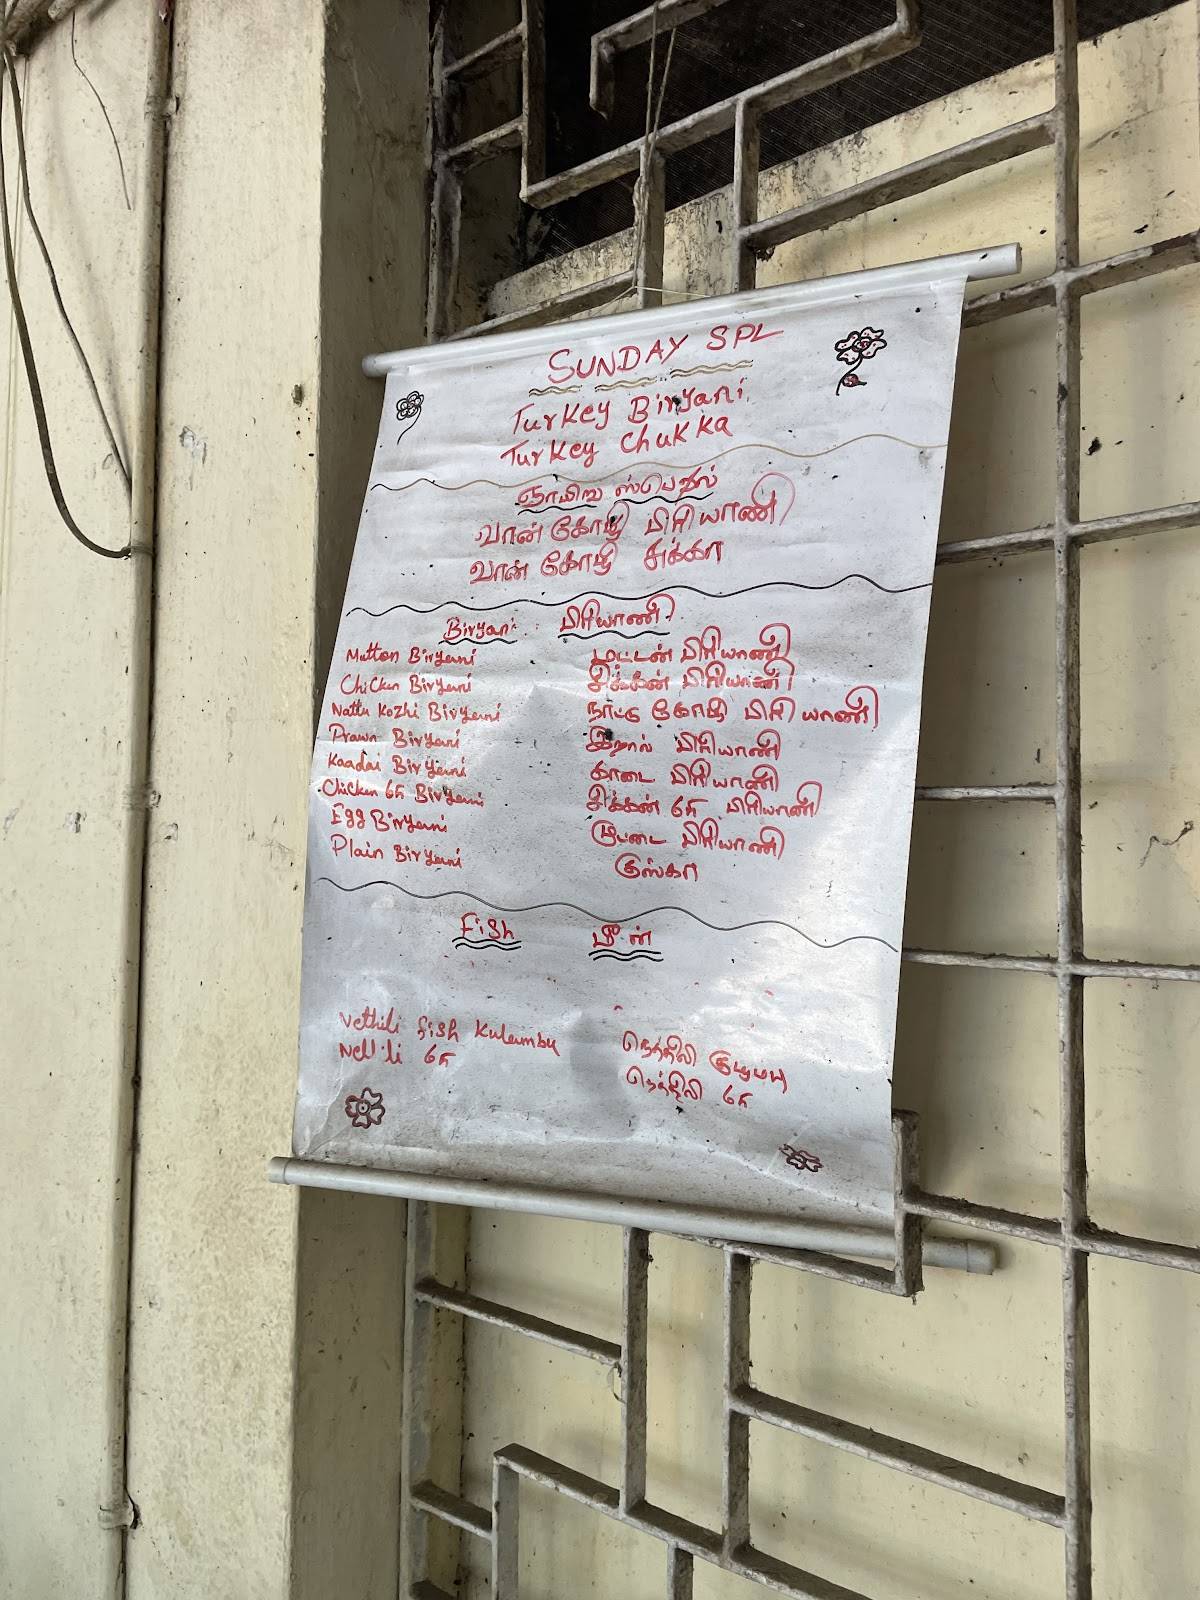 SUNDAY SPL
Turkey Biryani
Turkey Chukka
ஞாயிறு ஸ்பெசல்
வான் கோழி பிரியாணி
வான் கோழி சுக்கா
Biryani பிரியாணி
Mutton Biryani மட்டன் பிரியாணி
Chicken Biryani சிக்கன் பிரியாணி
Nattu Kozhi Biryani நாட்டு கோழி பிரியாணி
Prawn Biryani இறால் பிரியாணி
Kaadai Biryani காடை பிரியாணி
Chicken 65 Biryani சிக்கன் 65 பிரியாணி
Egg Biryani முட்டை பிரியாணி
Plain Biryani குஸ்கா
Fish மீன்
Vethili fish Kulambu நெத்திலி குழம்பு
65 நெத்திலி 65